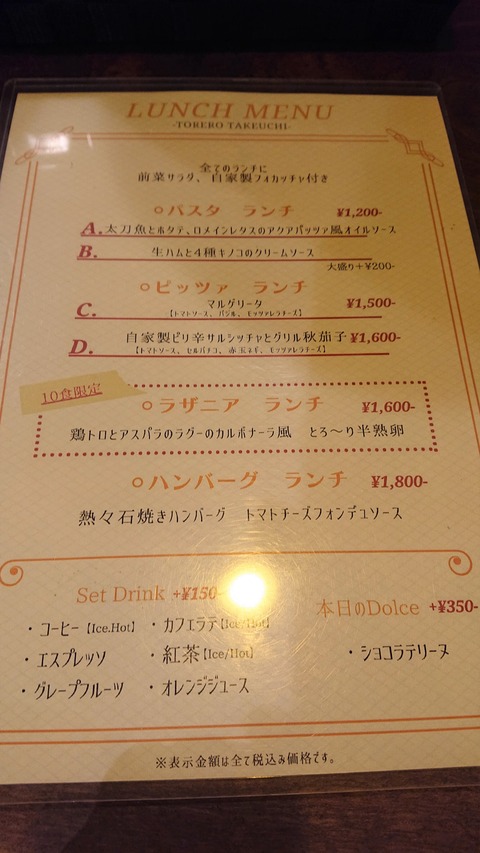 LUNCH MENU
-TORERO TAKEUCHI-
全てのランチに
前菜サラダ、自家製フォカッチャ付き
○パスタ ランチ ¥1,200-
A.太刀魚とホタテ、ロメインレタスのアクアパッツァ風オイルソース
B. 生ハムと4種キノコのクリームソース
大盛り+¥200-
○ピッツァ ランチ
C. マルゲリータ ¥1,500-
【トマトソース、バジル、モッツァレラチーズ】
D. 自家製ピリ辛サルシッチャとグリル秋茄子 ¥1,600-
【トマトソース、セルバチコ、赤玉ネギ、モッツァレラチーズ】
10食限定
○ラザニア ランチ ¥1,600-
鶏トロとアスパラのラグーのカルボナーラ風 とろ～り半熟卵
○ハンバーグ ランチ ¥1,800-
熱々石焼きハンバーグ トマトチーズフォンデュソース
Set Drink +¥150-
・コーヒー【Ice.Hot】 ・カフェラテ【Ice/Hot】
・エスプレッソ ・紅茶【Ice/Hot】
・グレープフルーツ ・オレンジジュース
本日のDolce +¥350-
・ショコラテリーヌ
※表示金額は全て税込み価格です。